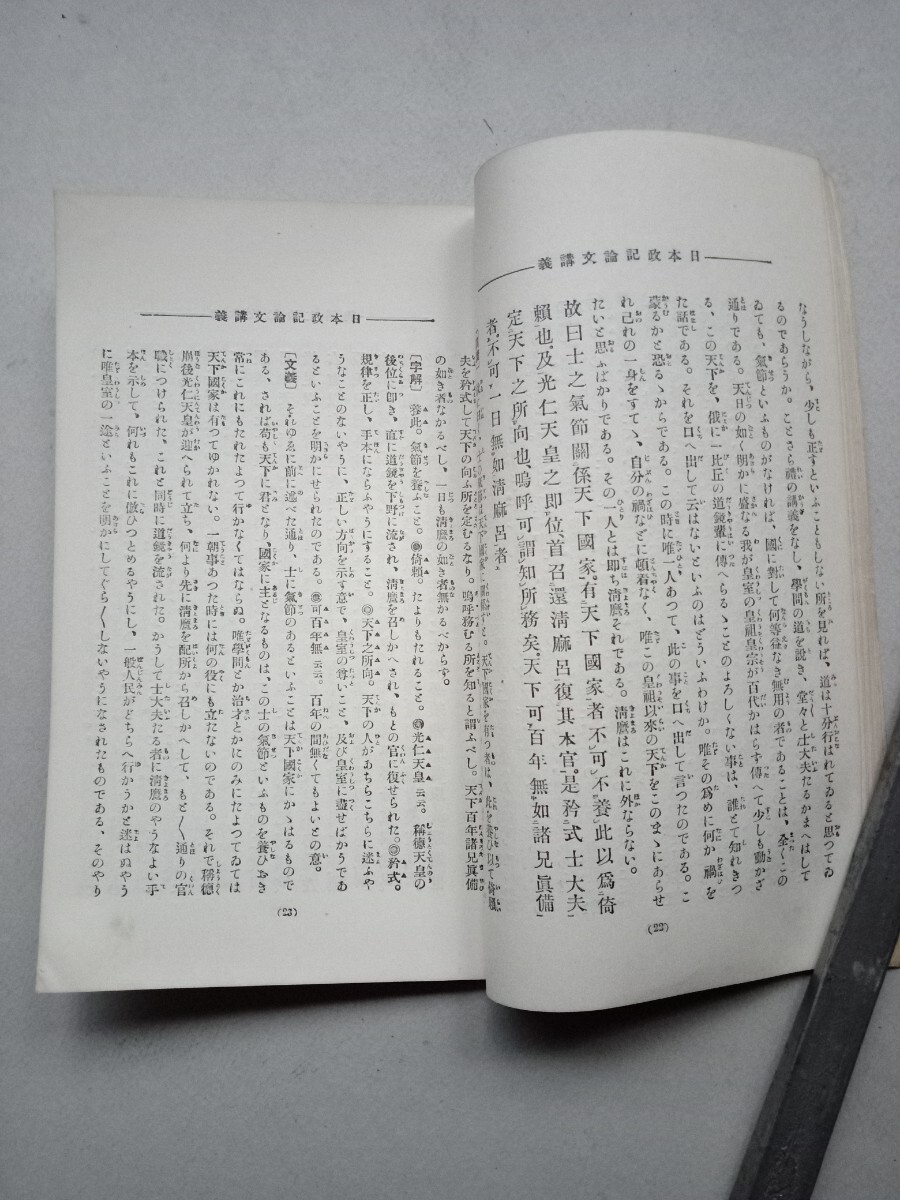 日本政記論文講義
なうしながら、少しも正すといふこともしない所を見れば、道は十分行はれてゐると思つてゐ
るのであらうか。ことさら禮の講義をなし、學問の道を說き、堂々と士大夫たるかまへはして
ゐても、氣節といふものがなければ、國に對して何等益なき無用の者であることは、全くこの
通りである。天日の如く明かに盛なる我が皇室の皇祖皇宗が百代かはらず傳へて少しも動かざ
る、この天下を、俄に一比丘の道鏡輩に傳へらるゝことのよろしくない事は、誰とて知れきつ
た話である。それを口へ出して云はないといふのはどういふわけか。唯その爲めに何か禍を
蒙るかと恐るゝからである。この時に唯一人あつて、此の事を口へ出して言つたのである。こ
れ己れの一身をすてゝ、自分の禍などに頓着なく、唯この皇祖以來の天下をこのまゝにあらせ
たいと思ふばかりである。その一人とは即ち淸麿それである。淸麿はこれに外ならない。
故曰士之氣節關係天下國家。有天下國家者不可不養此以爲倚
賴也。及光仁天皇之即位、首召還淸麻呂復其本官。是矜式士大夫
定天下之所向也。嗚呼可謂知所務矣。天下可百年無如諸兄眞備
者、不可一日無如淸麻呂者。
(22)
日本政記論文講義
夫を矜式して天下の向ふ所を定むるなり。嗚呼務むる所を知ると謂ふべし。天下百年諸兄眞備
の如き者なかるべし、一日も淸麿の如き者無かるべからず。
〔字解〕養此。氣節を養ふこと。◎倚賴。たよりもたれること。◎光仁天皇云云。稱德天皇の
後位に卽き、直に道鏡を下野に流され、淸麿を召しかへされ、もとの官に復せられた。◎矜式。
規律を正し、手本にならふやうにすること。◎天下之所向。天下の人があちらこちらに迷ふや
うなことのないやうに、正しい方向を示す意で、皇室の尊いこと、及び皇室に盡せばかうであ
るといふことを明かにせられたのである。◎可百年無云云。百年の間無くてもよいとの意。
〔文義〕それゆゑに前に述べた通り、士に氣節のあるといふことは天下國家にかゝはるもので
ある、されば苟も天下に君となり、國家に主となるものは、この士の氣節といふものを養ひおき
常にこれにもたれたよつて行かなくてはならぬ。唯學問とか治才とかにのみにたよつてゐては
天下國家は有つてゆかれない。一朝事あつた時には何の役にも立たないのである。それで稱德
崩後光仁天皇が迎へられて立ち、何より先に淸麿を配所から召しかへして、もと〱通りの官
職につけられた、これと同時に道鏡を流された。かうして士大夫たる者に淸麿のやうなよい手
本を示して、何れもこれに倣ひつとめるやうにし、一般人民がどちらへ行かうかと迷はぬやう
に唯皇室の一途といふことを明かにしてぐら〱しないやうになされたものである、そのやり
(23)